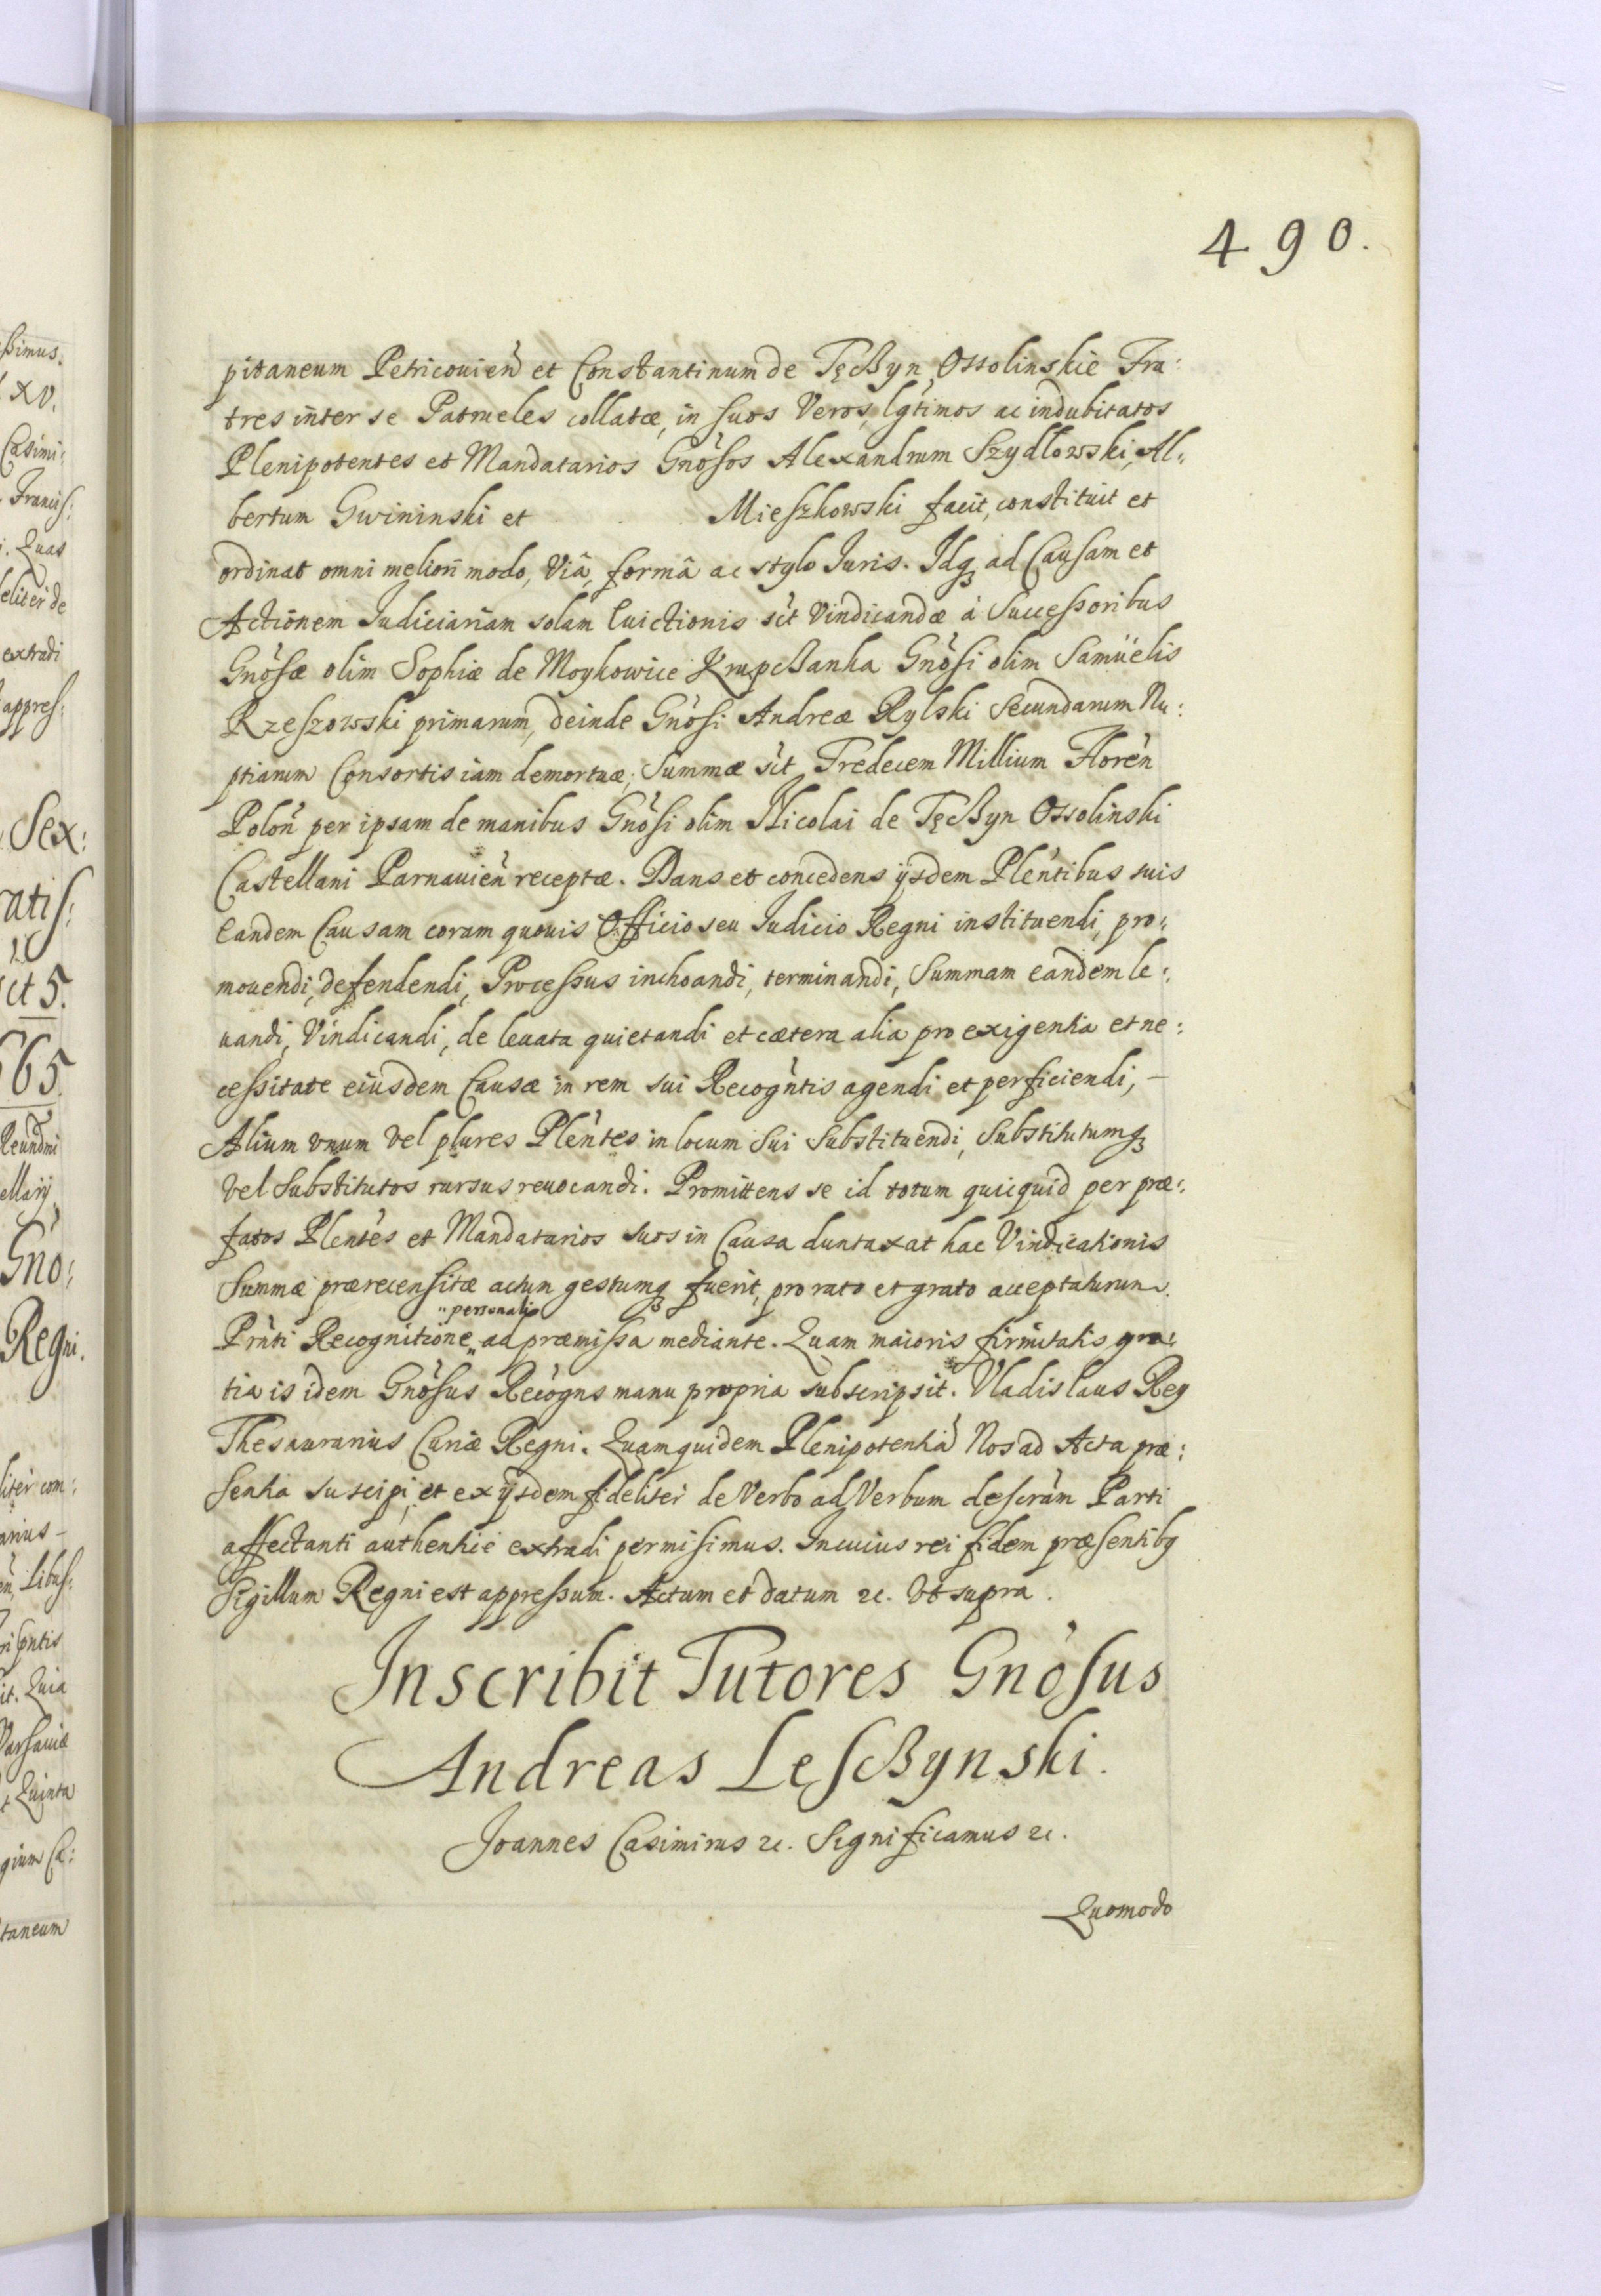 490.
pitaneum Petricouień et Constantinum de Tęczyn Ossolinskie Fra:
tres inter se Patrueles collatæ, in suos Veros, lgtimos ac indubitatos
Plenipotentes et Mandatarios Gnosos Alexandrum Szydlowski, Al:
bertum Gwininski et Mieszkowski facit, constituit et
ordinat omni meliori modo, Viâ, formâ ac stylo Iuris. Idq ad Causam et
Actionem Iudiciariam solam Euictionis sct Vindicandæ à Successoribus
Gnosæ olim Sophiæ de Moykowice Krupczanka Gnosi olim Samüelis
Rzeszowski primarum, deinde Gnosi Andreæ Rylski Secundarum Nu:
ptiarum Consortis iam demortuæ; Summæ sct Tredecem Millium Floren
Polon per ipsam de manibus Gnosi olim Nicolai de Tęczyn Ossolinski
Castellani Parnauien receptæ. Dans et concedens ijsdem Plentibus suis
Eandem Causam coram quouis Officio seu Iudicio Regni instituendi, pro:
mouendi, defendendi, Processus inchoandi, terminandi, Summam eandem le:
uandi, Vindicandi, de leuata quietandi et cætera alia pro exigentia et ne:
cessitate eiusdem Causæ in rem sui Recogntis agendi et perficiendi, —
Alium vnum vel plures Plentes in locum Sui Substituendi, Substitutumq
vel Substitutos rursus reuocandi. Promittens se id totum quicquid per præ:
fatos Plentes et Mandatarios suos in Causa duntaxat hac Vindicationis
Summæ prærecensitæ actum gestumq fuerit, pro rato et grato acceptaturum.
personali
Prnti Recognitione „ ad præmissa mediante. Quam maioris firmitatis gra:
tia is idem Gnosus Recogns manu propria subscripsit. Vladislaus Rey
Thesaurarius Curiæ Regni. Quam quidem Plenipotentia Nos ad Acta præ:
sentia suscipi, et ex ijsdem fideliter de Verbo ad Verbum descram Parti
affectanti authentice extradi permisimus. In cuius rei fidem præsentibq
Sigillum Regni est appressum. Actum et datum &c. Vt supra.
Inscribit Tutores Gnosus
Andreas Lesczynski.
Joannes Casimirus &c. Significamus &c.
Quomodo
ssimus.
XV.
Casimi:
Francis:
Quas
de
extradi
appres:
Sex:
ratis:
et 5.
665.
Gno:
Regni.
liter com:
arius –
Libus:
it. Quia
Varsauiæ
Quinta
gium Ca:
taneum